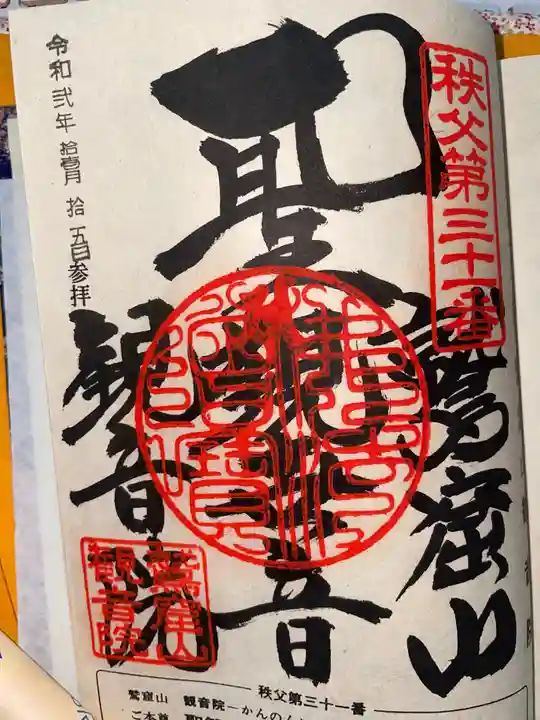 秩父第三十一番
鷲窟山
聖観世音
観音院
令和弐年 拾壱月 拾五日参拝
鷲窟山
観音院
秩父第三十一番
鷲窟山 観音院―かんのんい
ご本尊 聖観